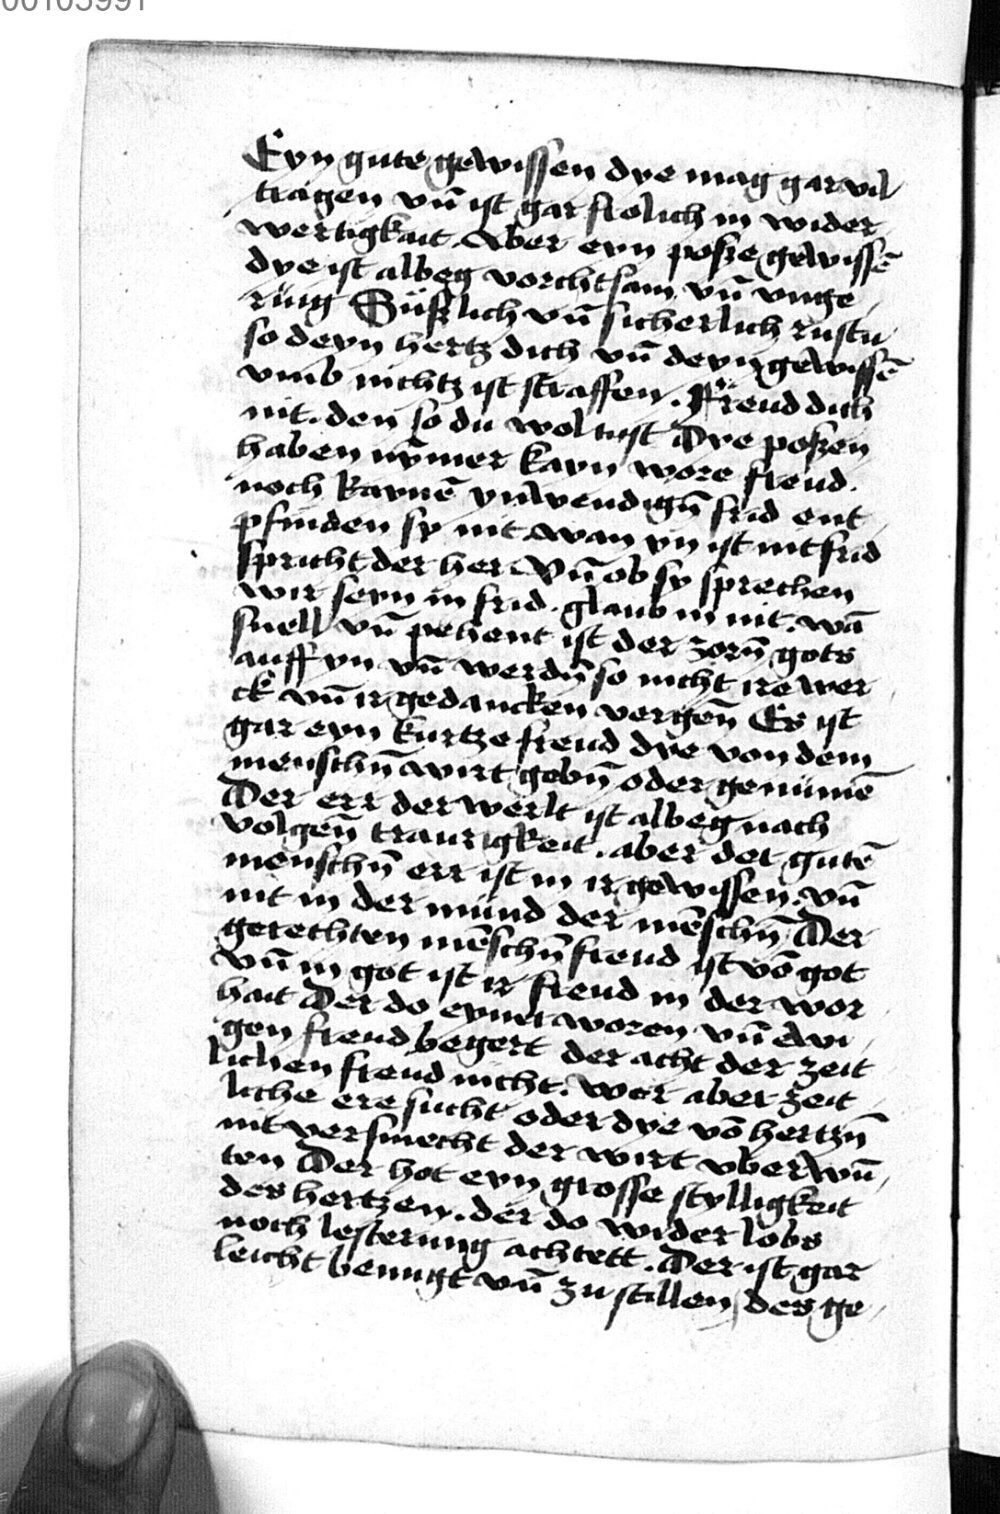 00103991
Eyn gute gewissen dye mag gar vil
tragen vñ ist gar frolich in wider
wertigkait. Aber eyn posze gewissē
dye ist albeg vorchtsam vñ vnge
rüig Süszlich vñ sicherlich rustu
so deyn hertz dich vñ deyn gewissē
vmb nichtz ist straffen. Freud dich
nit. den so du wol tust Dye poszen
haben nÿmer kayn wore freud.
noch kaynē ynwendigñ frid ent
pfinden sy nit wan yn ist nit frid
spricht der her Vñ ob sy sprechen
wir seyn in frid. glaub in nit. wā
snell vñ pehent ist der zorñ gots
auff yn vñ werdñ so nicht ire wer
ck vñ ir gedancken vergeñ Es ist
gar eyn kurtze freud dye von dem
menschñ wirt gebñ oder genümē
Der err der werlt ist albeg nach
volgeñ traurigkeit. aber der gutē
menschñ err ist in ir gewissen. vñ
nit in der münd der mēschñ Der
gerechten mēschñ freud ist vō got
vñ in got ist ir freud in der wor
hait Der do eyner woren vñ ewi
gen freud begert der acht der zeit
lichen freud nicht. wer aber zeit
liche ere sücht oder dye vō hertzñ
nit versmecht der wirt vberwū
ten Der hot eyn grosse stylligkeit
des hertzen. der do wider lobs
noch lesterung achtett. Der ist gar
leicht benügt vñ zu stillen des ge